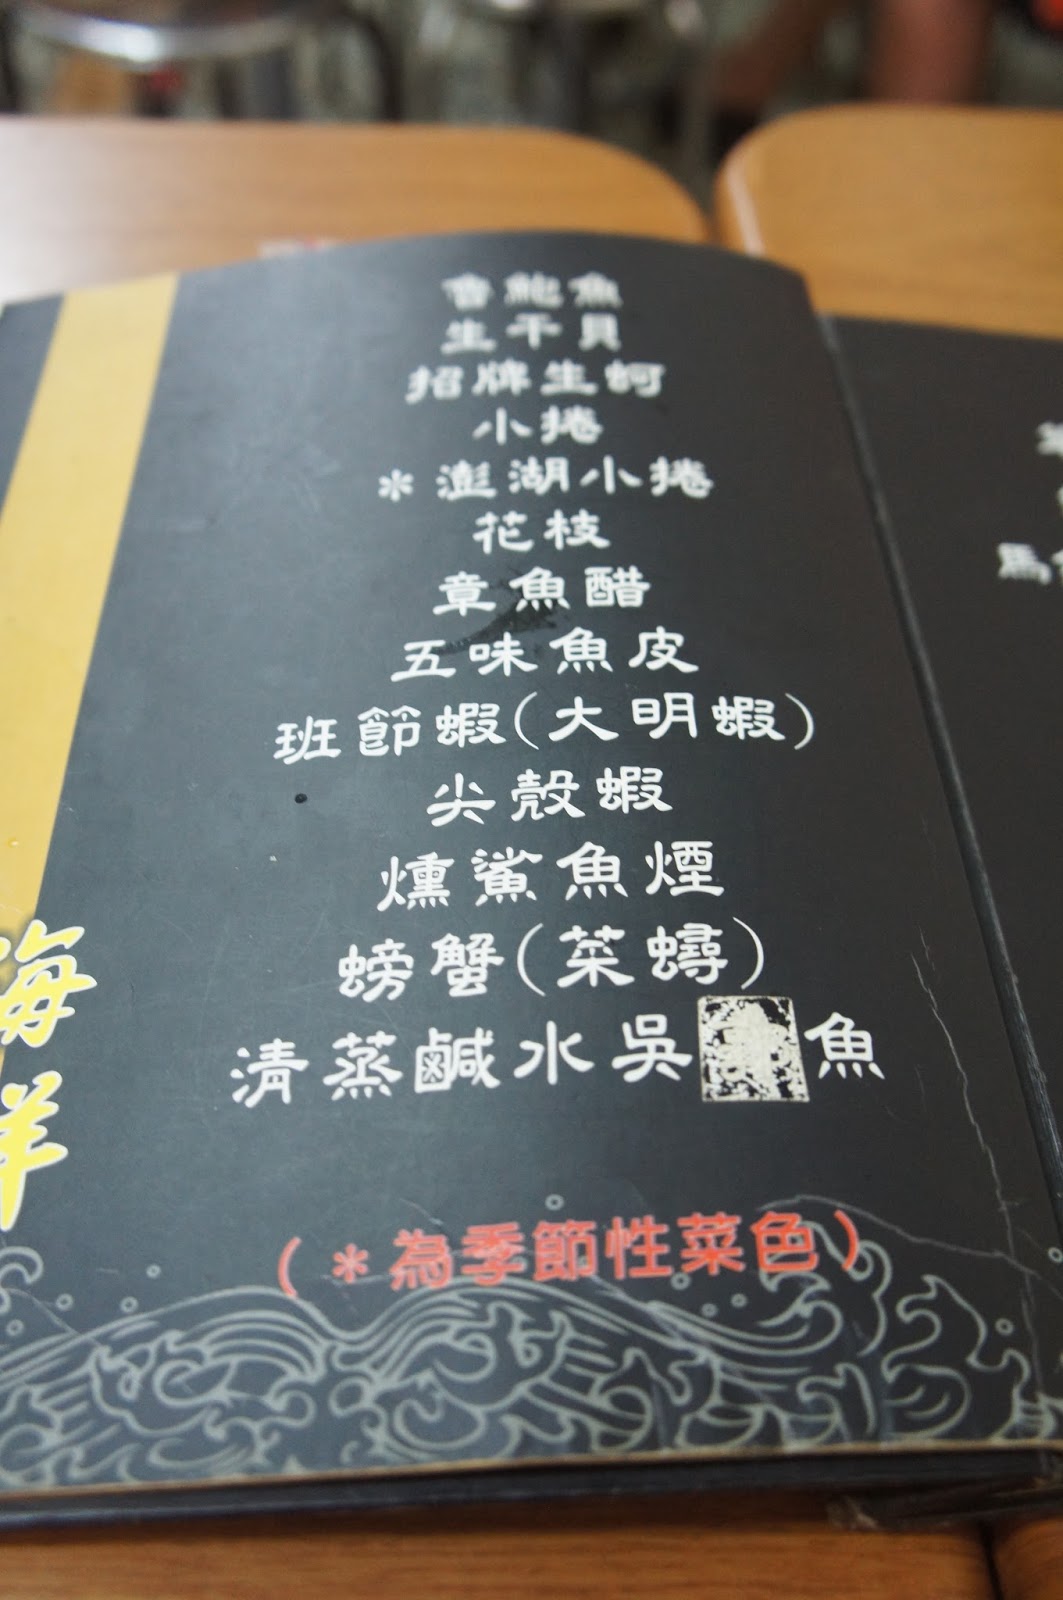 鮑魚
生干貝
招牌生蚵
小捲
*澎湖小捲
花枝
章魚醋
五味魚皮
班節蝦(大明蝦)
尖殼蝦
燻鯊魚煙
螃蟹(菜蟳)
清蒸鹹水吳 魚
(*為季節性菜色)
海
鮮
馬